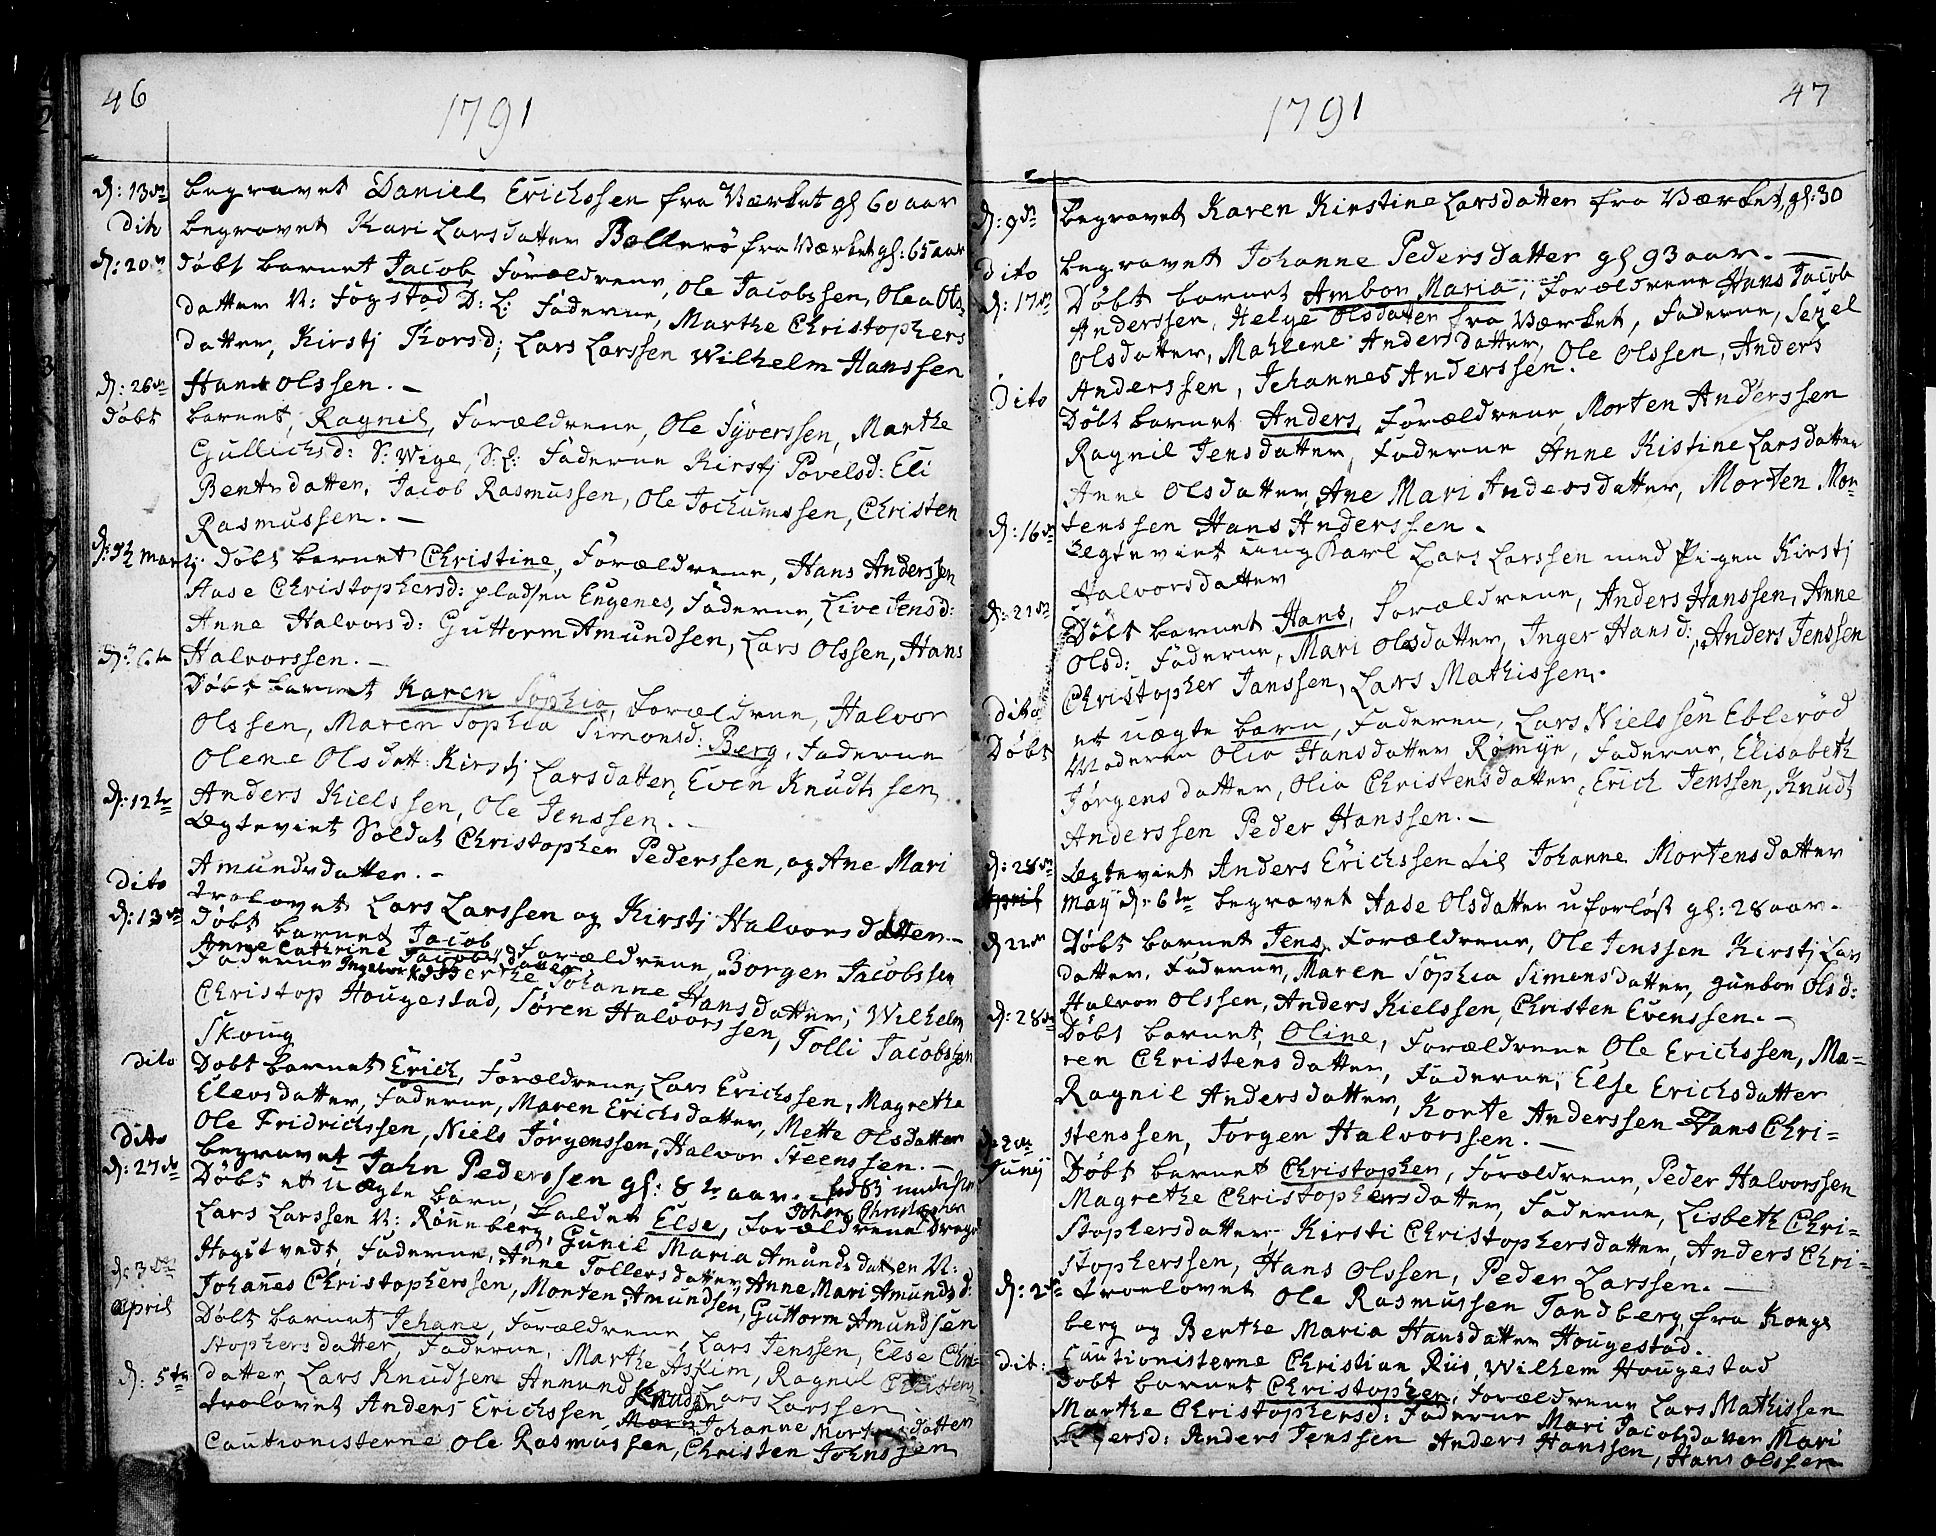 46
1791
d: 13de begravet Daniel Erichssen fra Værket gl 60 aar
dito begravet Kari Larsdatter Bollerø fra Værket gl: 65 aar
d: 20de Døbt barnet Jacob, Forældrene, Ole Jacobssen, Olea Ols
datter N: Fogstad D: L: Faderne, Marthe Christophers
datter, Kirstj Korsd; Lars Larssen Wilhelm Hanssen
Hans olssen. –
d: 26de Døbt barnet, Ragnil, Forældrene, Ole Syverssen, Marthe
Gullichsd: S: Wige, S: L: Faderne Kirstj Povelsd: Eli
Bentsdatter, Jacob Rasmussen, Ole Jochumssen, Christen
Rasmussen. –
Martj Døbt barnet Christine, Forældrene, Hans Anderssen
Aase Christophersd: pladsen Engenes, Faderne, Live Jensd:
Anne Halvorsd: Guttorm Amundsen, Lars Olssen, Hans
Halvorssen. –
d: 6te Døbt barnet Karen Sophia, Forældrene, Halvor
Olssen, Maren Sophia Simonsd: Berg, Faderne
Olene Olsdatt: Kirstj Larsdatter, Even Knudtssen,
Anders Kielssen, Ole Jenssen. –
d: 12te Ægteviet Soldat Christopher Pederssen, og Ane Mari
Amundsdatter. –
dito trolovet Lars Larssen og Kirstj Halvorsdatter. –
d: 13de Døbt barnet Jacob, Forældrene, Borger Jacobssen
Anne Cathrine Jacobsdatter,
Faderne Ingebor Berthe Johanne Hansdatter, Wilhelm
Christop Hougestad, Søren Halvorssen, Tolli Jacobssen
Skoug
dito Døbt barnet Erich, Forældrene, Lars Erichssen, Magrethe
Elevsdatter, Faderne, Maren Erichsdatter, Mette Olsdatter
Ole Fridrichssen, Niels Jørgenssen, Halvor Steenssen. –
dito begravet Jahn Pederssen gl: 82 aar.
d: 27de Døbt et uægte barn, kaldet Else, Forældrene Dreng
Johan Christopher
Lars Larssen N: Rønneberg, Gunil Maria Amundsdatter N:
Hogstvedt, Faderne, Anne Tollersdatter, Anne Mari Amundsd:
Johanes Christopherssen, Morten Amundsen, Guttorm Amundsen
d: 3de april Døbt barnet Jehane, Forældrene, Lars Jenssen, Else Chri-
stophersdatter, Faderne, Marthe Askim, Ragnil Christens
datter, Lars Knudsen Amund Knudsen Lars Larssen
d: 5te trolovet Anders Erichssen Johanne Mortensdatter
Cautionisterne Ole Rasmussen, Christen Johnssen
47
1791
d: 9de begravet Karen Kirstine Larsdatter fra Værket, gl: 30
dito begravet Johanne Pedersdatter gl 93 aar. –
d: 17de Døbt barnet Ambor Maria, Forældrene Hans Jacob
Anderssen, Helge Olsdatter fra Værket, Faderne, Sezel
Olsdatter, Mahlene Andersdatter, Ole Olssen, Anders
Anderssen, Johannes Anderssen.
Dito Døbt barnet Anders, Forældrene, Morten Anderssen
Ragnil Jensdatter, Faderne Anne Kistine Larsdatter
Anne Olsdatter, Ane Mari Andersdatter, Morten Mor-
tenssen Hans Anderssen.
d: 16de Ægteviet ungkarl Lars Larssen med Pigen Kirstj
Halvorsdatter
d: 21de Døbt barnet Hans, Forældrene, Anders Hanssen, Anne
Olsd: Faderne, Mari Olsdatter, Inger Hansd:, Anders Jenssen
Christopher Janssen, Lars Mathissen.
dito Døbt et uægte barn, Faderen, Lars Nielssen Eblerød
Moderen Olia Hansdatter Rømye, Faderne, Elisabeth
Jørgensdatter, Olia Christensdatter, Erich Jenssen, Knudt
Anderssen Peder Hanssen. –
d: 28de Ægteviet Anders Erichssen til Johanne Mortensdatter
April May d: 6te begravet Aase Olsdatter uforløst gl: 28 aar.
d 22de Døbt barnet Jens, Forældrene, Ole Jenssen Kirstj Lars
datter, Faderne, Maren Sophia Simensdatter, gunbor Olsd:
Halvor Olssen, Anders Kielssen, Christen Evenssen. –
d: 28de Døbt barnet, Oline, Forældrene Ole Erichssen, Ma-
ren Christensdatter, Faderne, Else Erichsdatter
Ragnil Andersdatter, Korte Anderssen Hans Chri-
stenssen, Jørgen Halvorssen. –
d 2de Junij Døbt barnet Christopher, Forældrene, Peder Halvorssen
Magrethe Christophersdatter, Faderne, Lisbeth Chri-
stophersdatter Kirsti Christophersdatter, Anders Chri-
stopherssen, Hans Olssen, Peder Larssen. –
d: 2de troelovet Ole Rasmussen Tandberg, fra Kongs
berg og Berthe Maria Hansdatter Hougestad.
Cautionisterne Christian Riis, Wilhem Hougestad
dit: Døbt barnet Christopher, Forældrene Lars Mathissen
Marthe Christophersd: Faderne Mari Jacobsdatter Mari
Anders Jenssen Anders Hanssen, Hans olssen